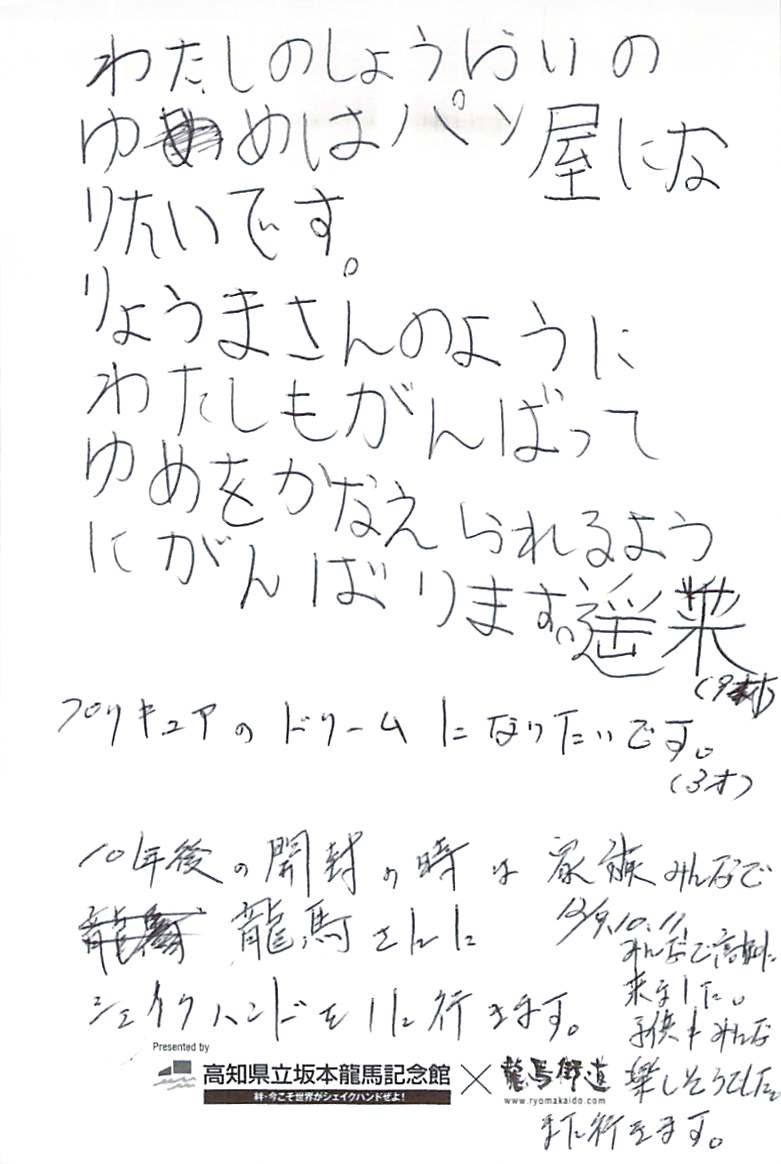 わたしのしょうらいの
ゆめはパン屋にな
りたいです。
りょうまさんのように
わたしもがんばって
ゆめをかなえられるよう
にがんばります。遥菜
(9才)
プリキュアのドリームになりたいです。
(3才)
10年後の開封の時は家族みんなで
龍馬さんに
シェイクハンドをしに行きます。
10.11
みんなで高知に
来ました。
子供もみんな
楽しそうでした。
また行きます。
Presented by
高知県立坂本龍馬記念館
絆・今こそ世界がシェイクハンドぜよ!
×
龍馬街道
www.ryomakaido.com